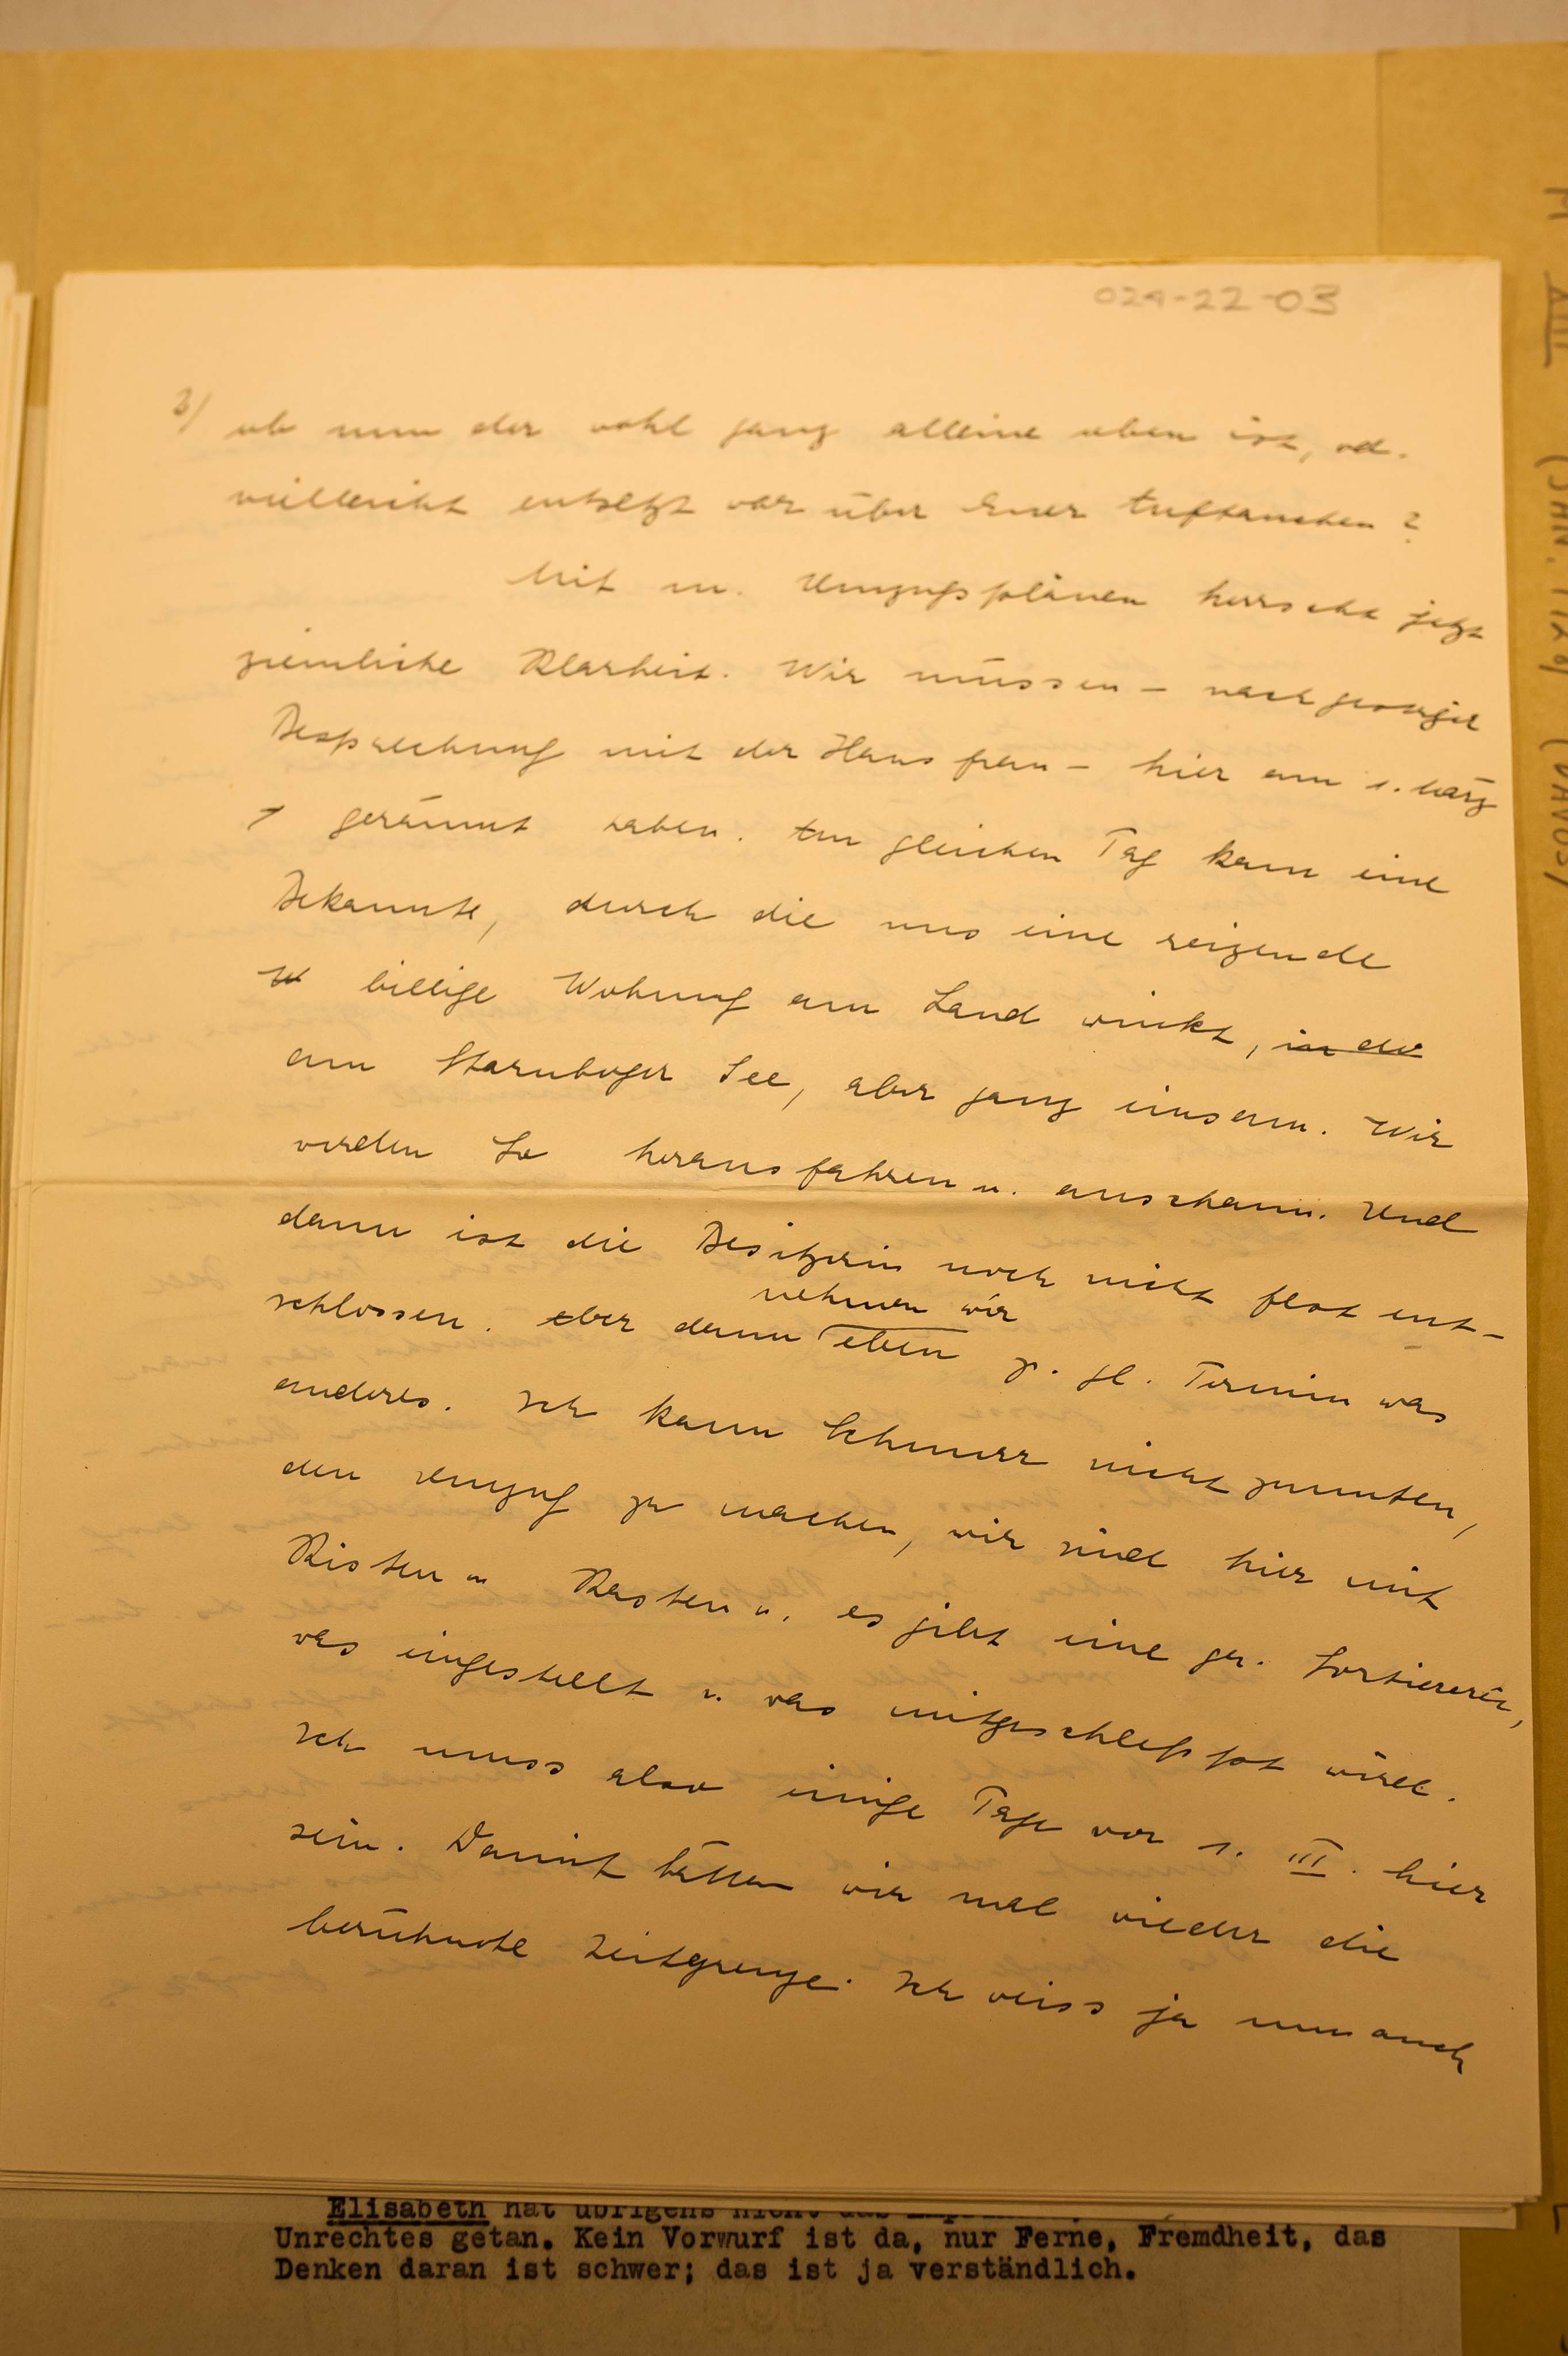 024-22-03
3/ ob nun der wohl ganz alleine oben ist, od.
vielleicht entsetzt war über Euer Auftauchen?
Mit m. Umzugsplänen herrscht jetzt
ziemliche Klarheit. Wir müssen – nach gestriger
Besprechung mit der Hausfrau – hier am 1. März
geräumt haben. Am gleichen Tag kam eine
Bekannte, durch die uns eine reizende
billige Wohnung am Land winkt, in der
am Starnberger See, aber ganz einsam. Wir
werden So herausfahren u. anschauen. Und
dann ist die Besitzerin noch nicht fest ent-
schlossen. Aber dann nehmen wir eben z. gl. Termin was
anderes. Ich kann Schnurr nicht zumuten,
den Umzug zu machen, wir sind hier mit
Kisten u Kasten u. es gibt eine gr. Sortiererei,
was eingestellt u. was mitgeschleppt wird.
Ich muss also einige Tage vor 1. III. hier
sein. Damit hätten wir mal wieder die
berühmte Zeitgrenze. Ich weiss ja nun auch
Elisabeth hat übrigens nicht das
Unrechtes getan. Kein Vorwurf ist da, nur Ferne, Fremdheit, das
Denken daran ist schwer; das ist ja verständlich.
XIII
(DAVOS)